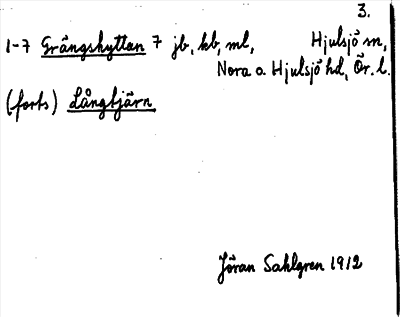 3.
1-7 Grängshyttan 7 jb, kb, ml, Hjulsjö sn,
Nora o. Hjulsjö hd, Ör. l.
(forts) Långtjärn
Jöran Sahlgren 1912